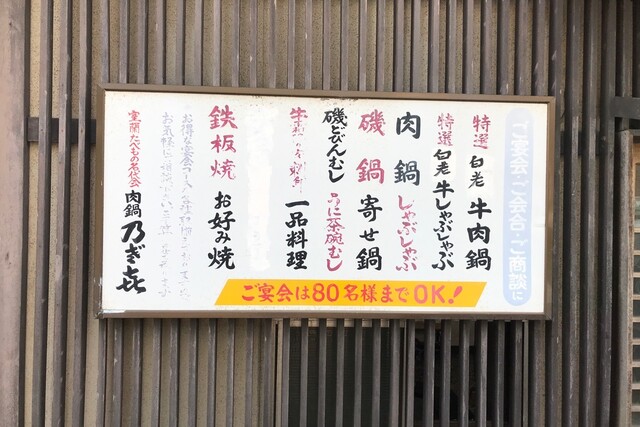 ご宴会・ご会合・ご商談に
特選 白老 牛肉鍋
特選 白老 牛しゃぶしゃぶ
肉鍋 しゃぶしゃぶ
磯鍋 寄せ鍋
磯どびんむし うに茶碗むし
一品料理
鉄板焼 お好み焼
お得な宴会
お気軽に
室蘭たべもの名代会 肉鍋 乃ぎ㐂
ご宴会は80名様までOK!